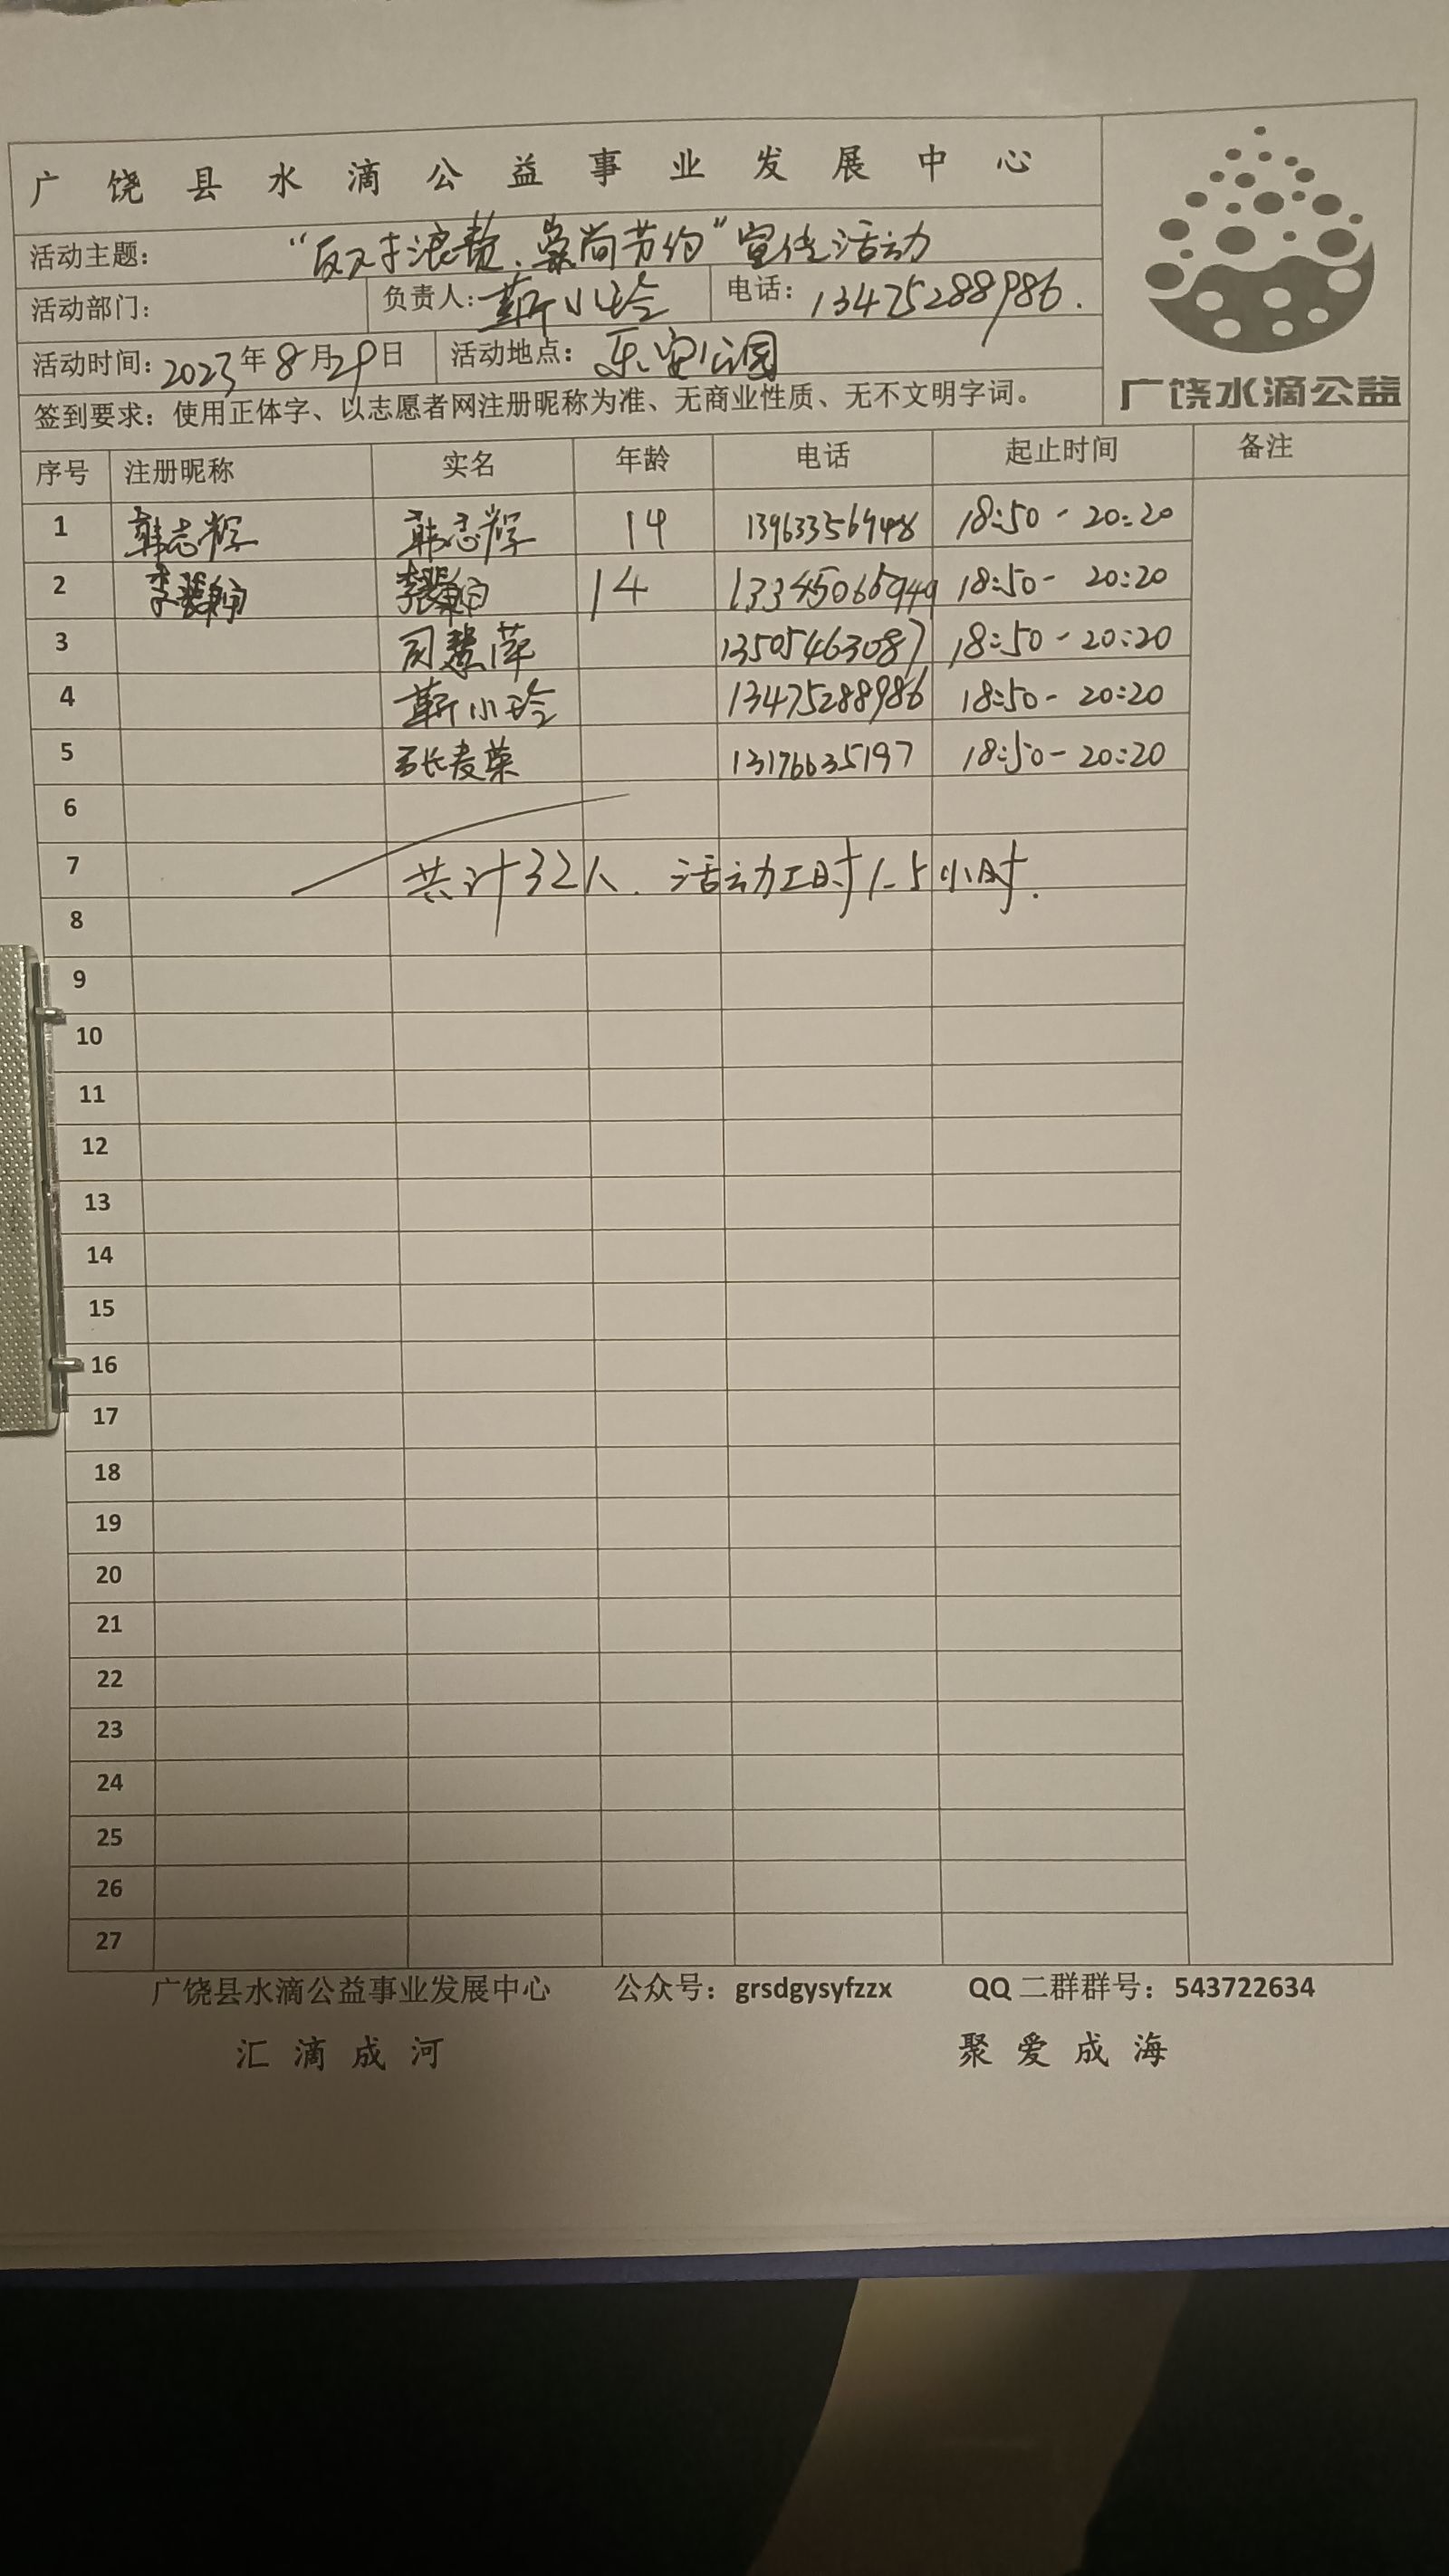 广饶县水滴公益事业发展中心
活动主题： “反对浪费、崇尚节约”宣传活动
活动部门： 负责人：靳小玲 电话：13475288986.
活动时间：2023年8月29日 活动地点：乐安公园
签到要求：使用正体字、以志愿者网注册昵称为准、无商业性质、无不文明字词。
广饶水滴公益
序号 注册昵称 实名 年龄 电话 起止时间 备注
1 韩志辉 韩志辉 14 13963356948 18:50-20:20
2 14 13345065949 18:50-20:20
3 13505463087 18:50-20:20
4 靳小玲 13475288986 18:50-20:20
5 13176635197 18:50-20:20
6
7 共计32人、活动工时1.5小时.
8
9
10
11
12
13
14
15
16
17
18
19
20
21
22
23
24
25
26
27
广饶县水滴公益事业发展中心 公众号：grsdgysyfzzx QQ二群群号：543722634
汇滴成河 聚爱成海